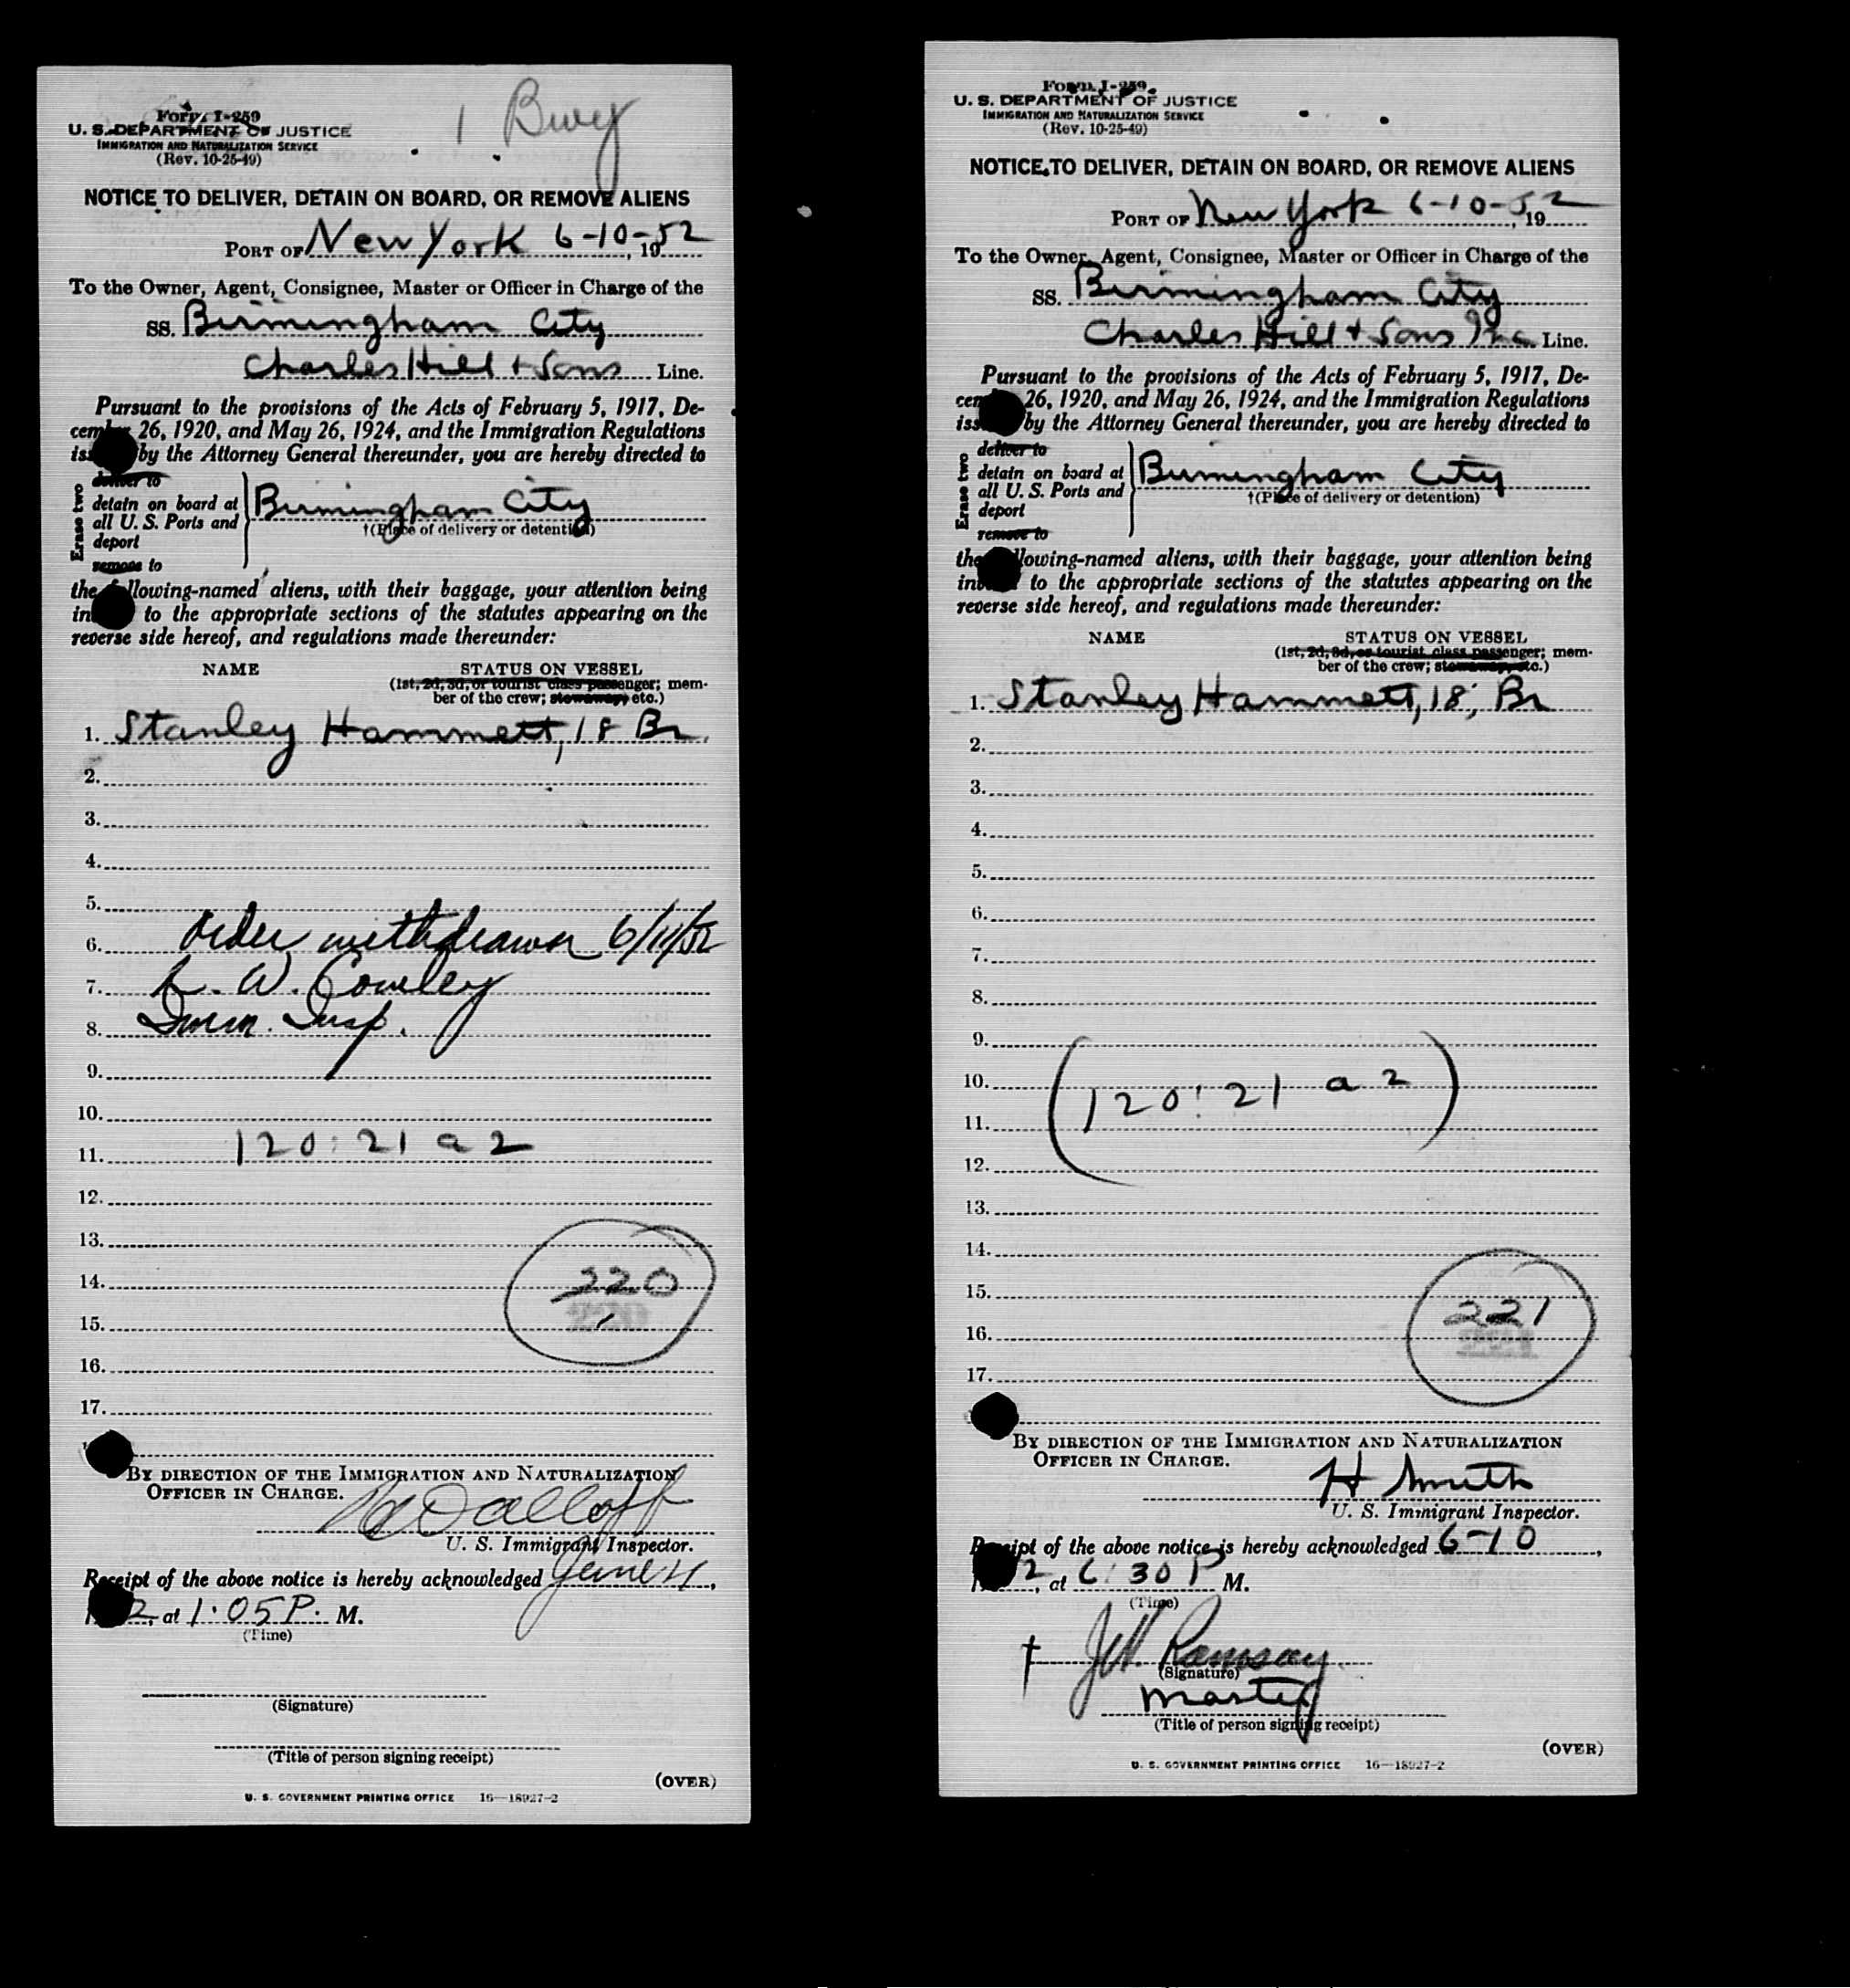 Form I-259
U. S. DEPARTMENT OF JUSTICE
IMMIGRATION AND NATURALIZATION SERVICE
(Rev. 10-25-49)
1 Bwy
NOTICE TO DELIVER, DETAIN ON BOARD, OR REMOVE ALIENS
PORT OF New York 6-10-52, 19
To the Owner, Agent, Consignee, Master or Officer in Charge of the
SS. Birmingham City
Charles Hill + Sons Line.
Pursuant to the provisions of the Acts of February 5, 1917, De-
cember 26, 1920, and May 26, 1924, and the Immigration Regulations
is by the Attorney General thereunder, you are hereby directed to
Erase two
deliver to
detain on board at
all U. S. Ports and
deport
remove to
Birmingham City
†(Place of delivery or detention)
the following-named aliens, with their baggage, your attention being
in to the appropriate sections of the statutes appearing on the
reverse side hereof, and regulations made thereunder:
NAME STATUS ON VESSEL
(1st, 2d, 3d, or tourist class passenger; mem-
ber of the crew; stowaway, etc.)
1. Stanley Hammett, 18 Br
2.
3.
4.
5.
6. Order withdrawn 6/11/52
7. L. W. Cowley
8. Imm. Insp.
9.
10.
11. 120:21 a 2
12.
13.
14. 220
15.
16.
17.
BY DIRECTION OF THE IMMIGRATION AND NATURALIZATION
OFFICER IN CHARGE.
U. S. Immigrant Inspector.
Receipt of the above notice is hereby acknowledged June 11,
2, at 1:05 P. M.
(Time)
(Signature)
(Title of person signing receipt)
(OVER)
U. S. GOVERNMENT PRINTING OFFICE 16—18927-2
Form I-259
U. S. DEPARTMENT OF JUSTICE
IMMIGRATION AND NATURALIZATION SERVICE
(Rev. 10-25-49)
NOTICE TO DELIVER, DETAIN ON BOARD, OR REMOVE ALIENS
PORT OF New York 6-10-52, 19
To the Owner, Agent, Consignee, Master or Officer in Charge of the
SS. Birmingham City
Charles Hill + Sons Inc. Line.
Pursuant to the provisions of the Acts of February 5, 1917, De-
cem 26, 1920, and May 26, 1924, and the Immigration Regulations
iss by the Attorney General thereunder, you are hereby directed to
Erase two
deliver to
detain on board at
all U. S. Ports and
deport
remove to
Birmingham City
†(Place of delivery or detention)
the following-named aliens, with their baggage, your attention being
in to the appropriate sections of the statutes appearing on the
reverse side hereof, and regulations made thereunder:
NAME STATUS ON VESSEL
(1st, 2d, 3d, or tourist class passenger; mem-
ber of the crew; stowaway, etc.)
1. Stanley Hammett, 18, Br
2.
3.
4.
5.
6.
7.
8.
9.
10. (120:21 a 2)
11.
12.
13.
14.
15. 221
16.
17.
BY DIRECTION OF THE IMMIGRATION AND NATURALIZATION
OFFICER IN CHARGE.
H Smith
U. S. Immigrant Inspector.
Receipt of the above notice is hereby acknowledged 6-10,
2, at 6:30 P M.
(Time)
† J.H. Ramsay
(Signature)
Master
(Title of person signing receipt)
(OVER)
U. S. GOVERNMENT PRINTING OFFICE 16—18927-2